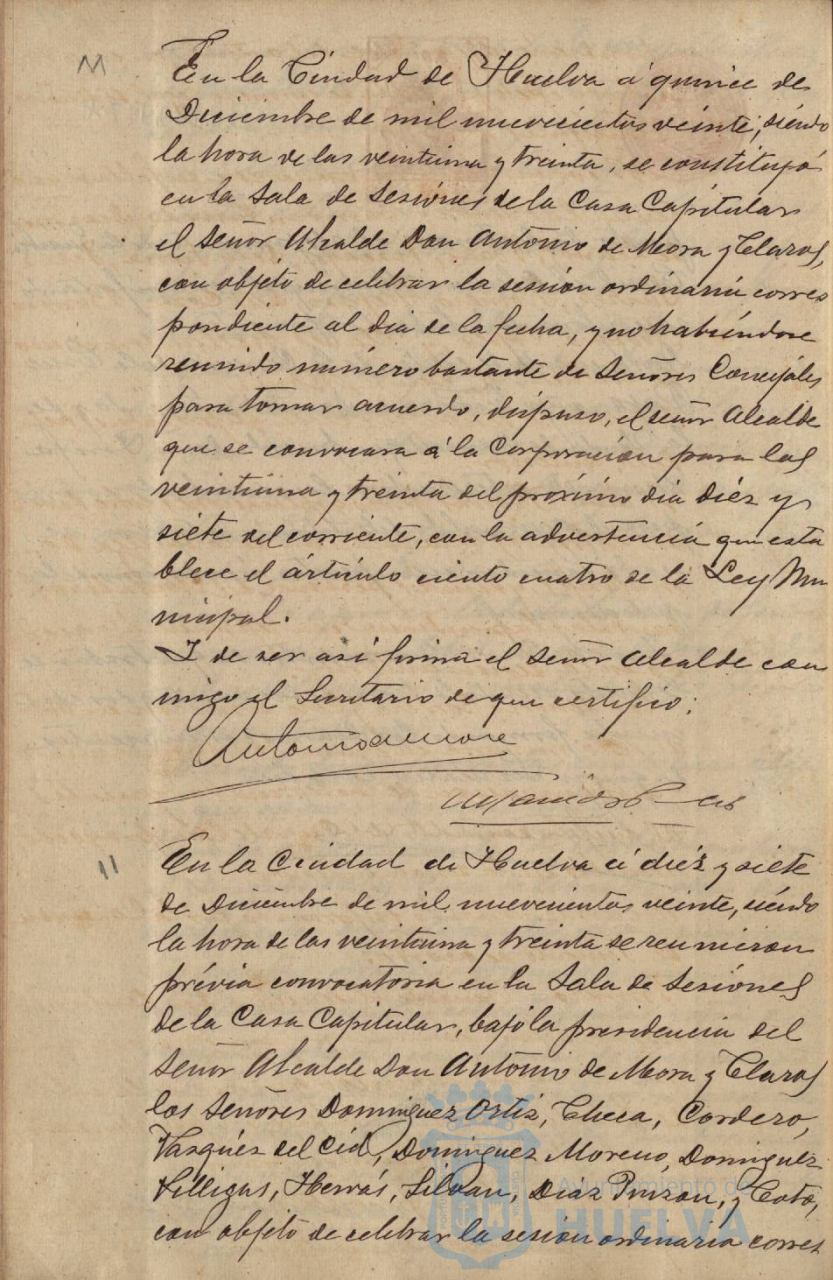 M
En la Ciudad de Huelva á quince de
Diciembre de mil nuevecientos veinte, siendo
la hora de las veintiuna y treinta, se constituyó
en la Sala de Sesiones de la Casa Capitular
el Señor Alcalde Don Antonio de Mora y Claros,
con objeto de celebrar la sesión ordinaria corres
pondiente al dia de la fecha, y no habiéndose
reunido número bastante de Señores Concejales
para tomar acuerdo, dispuso, el señor Alcalde
que se convocara á la Corporación para las
veintiuna y treinta del próximo dia diéz y
siete del corriente, con la advertencia que esta
blece el artículo ciento cuatro de la Ley Mu
nicipal.
Y de ser así firma el Señor Alcalde con
migo el Secretario de que certifico:
Antonio de Mora
11
En la Ciudad de Huelva á diéz y siete
de Diciembre de mil nuevecientos veinte, siendo
la hora de las veintiuna y treinta se reunieron
prévia convocatoria en la Sala de Sesiones
de la Casa Capitular, bajo la presidencia del
Señor Alcalde Don Antonio de Mora y Claros
los Señores Dominguez Ortiz, Checa, Cordero,
Vazquéz del Cid, Dominguez Moreno, Dominguez
Villigas, Hervás, Silván, Diaz Pinzon, y Coto,
con objeto de celebrar la sesión ordinaria corres
Ayuntamiento de
HUELVA